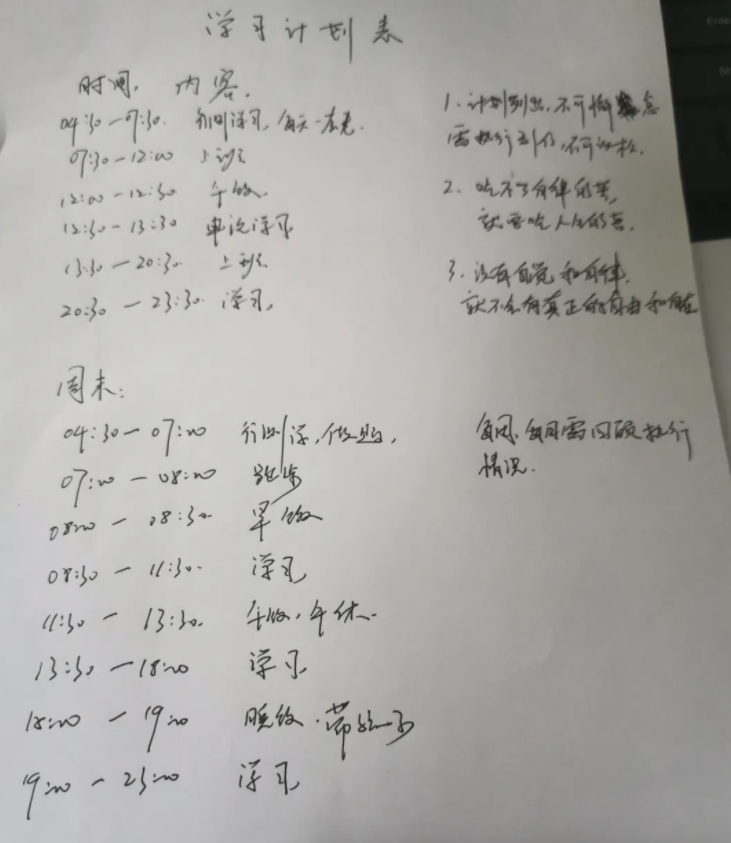 学习计划表
时间. 内容.
04:30—07:30. 学习, 每天一
07:30—12:00 上班
12:00—12:30 午饭.
12:30—13:30 学习
13:30—20:30. 上班
20:30—23:30. 学习,
1. 计划列出, 不可懈怠
需执行到位, 不可
2. 吃不了自律的苦,
就要吃人生的苦.
3. 没有自觉和自律,
就不会有真正的自由和自在
周末:
04:30—07:00
07:00—08:00 跑步
08:00—08:30 早饭
08:30—11:30. 学习
11:30—13:30. 午饭. 午休.
13:30—18:00 学习
18:00—19:00 晚饭. 带孩子
19:00—23:00 学习
每周、每月需回顾执行
情况.